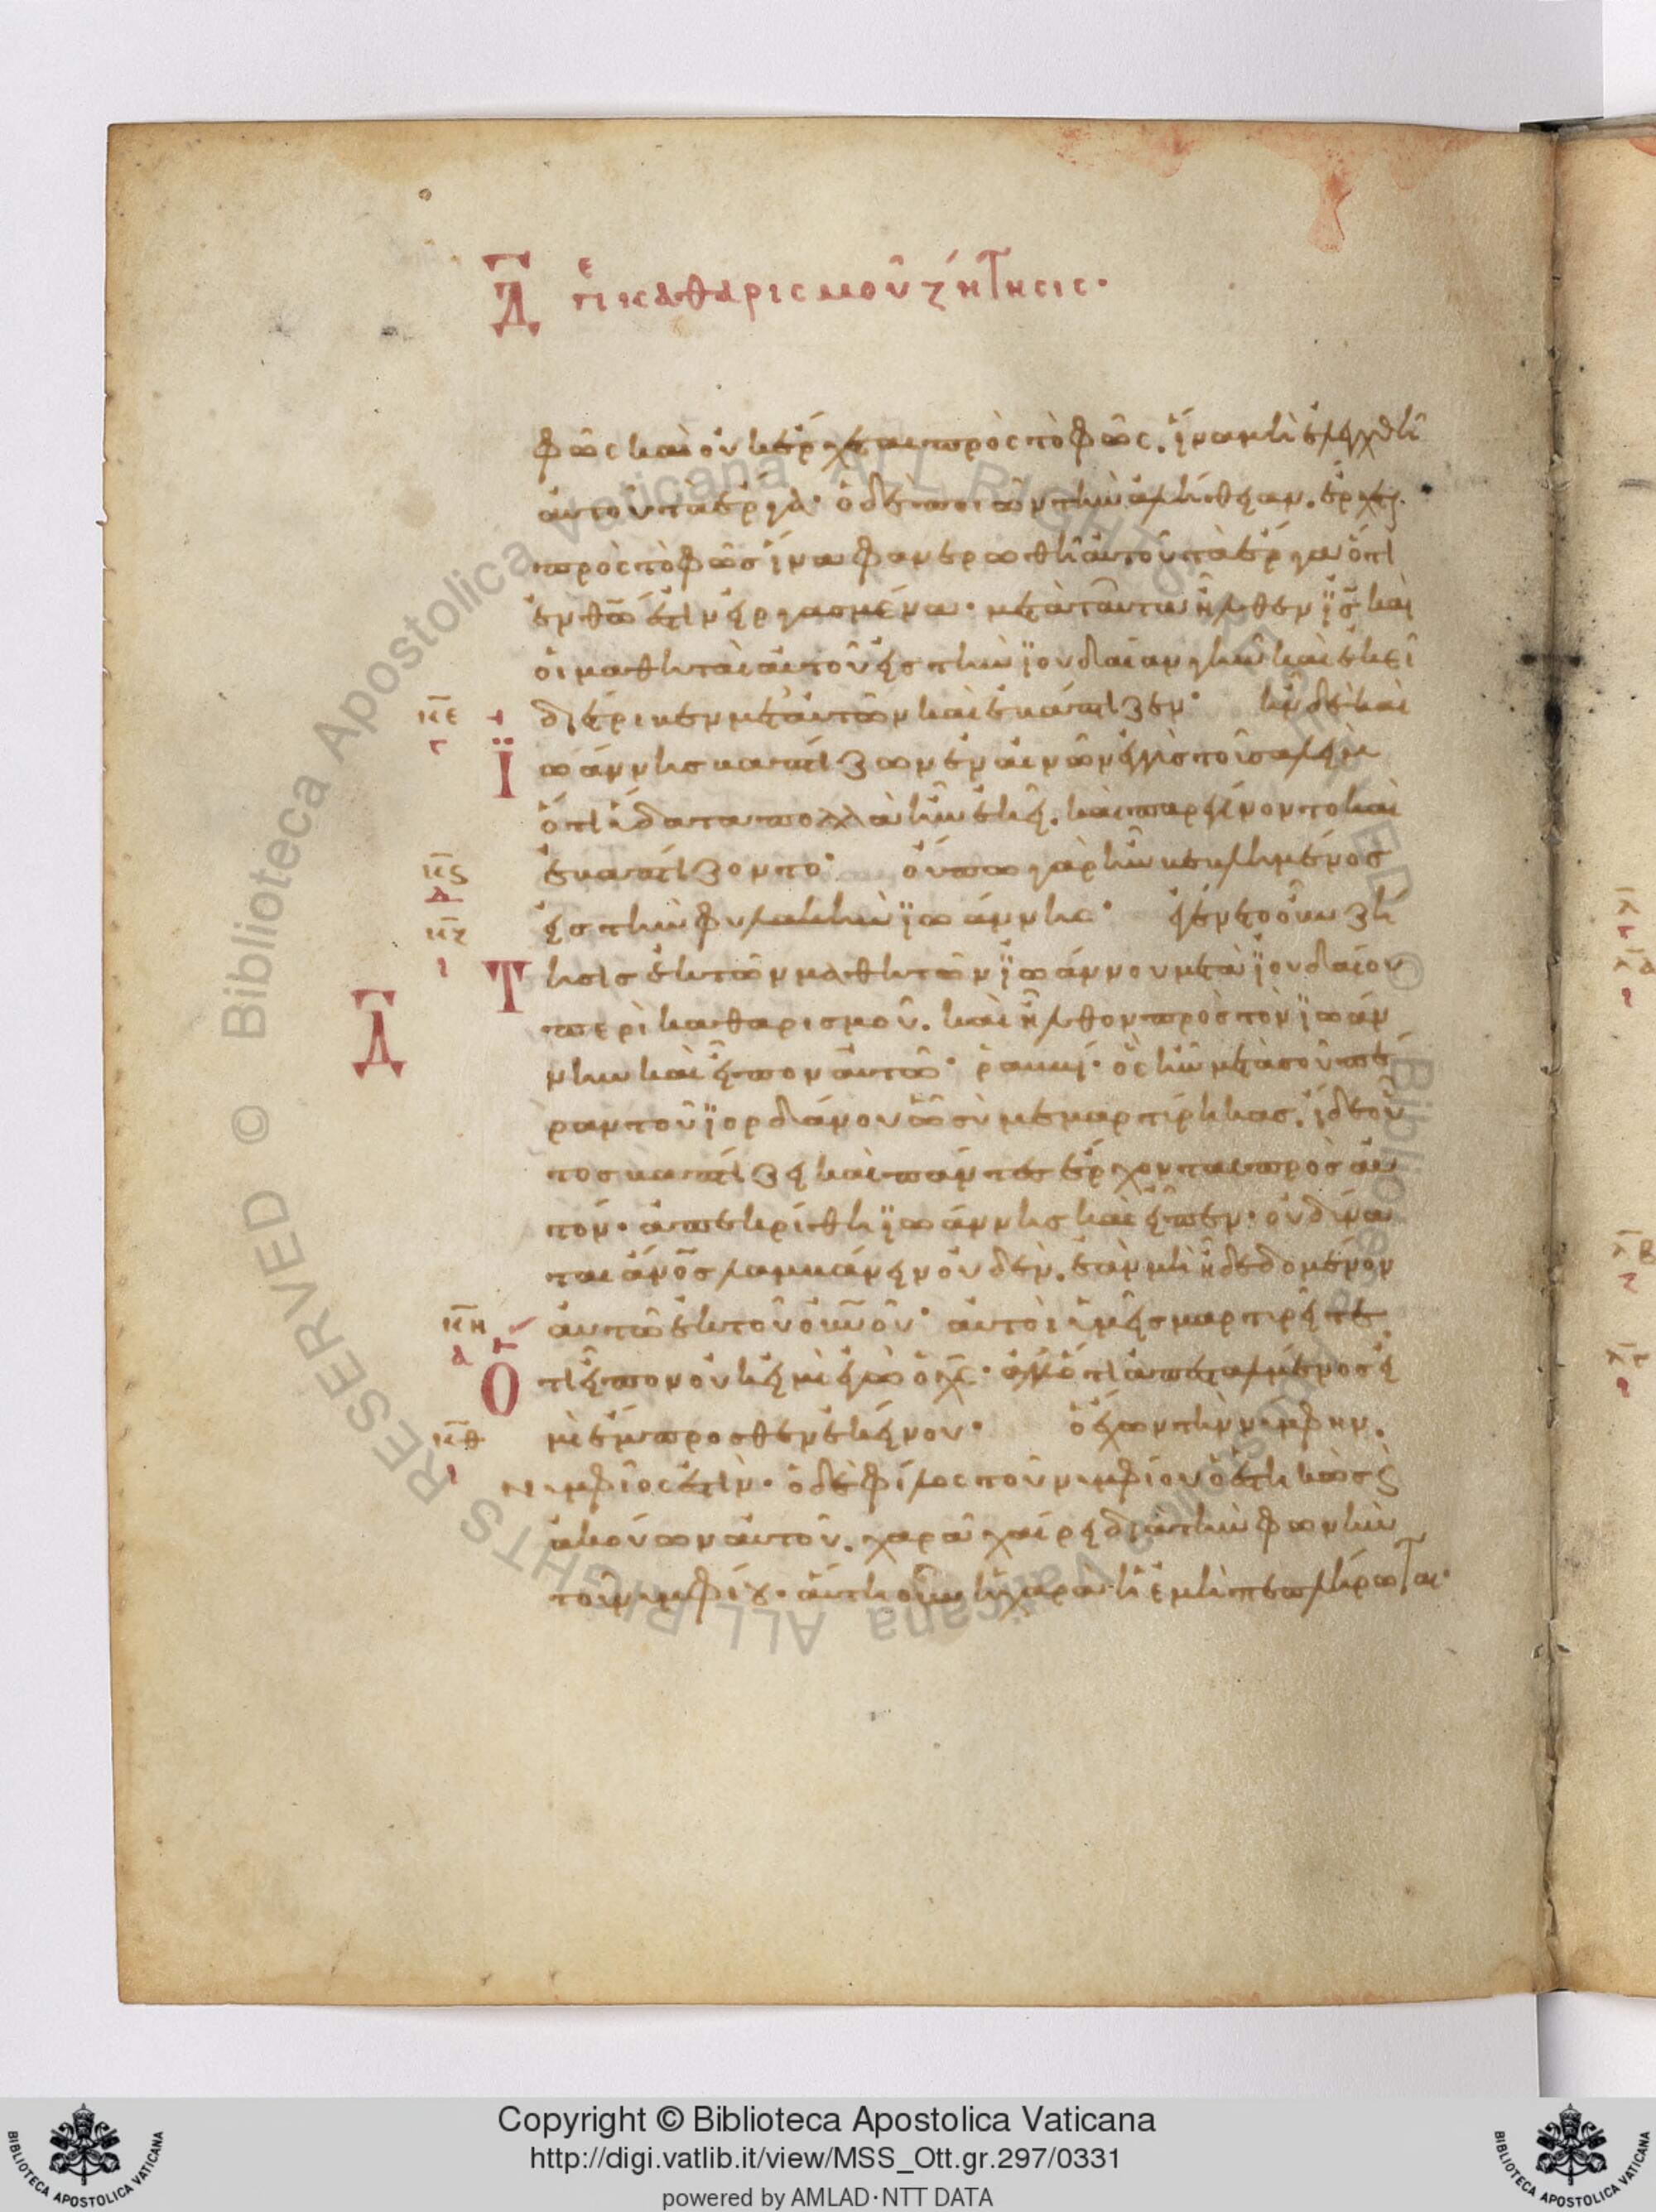 Δ Πε καθαρισμοῦ ζήτησις·
φῶς καὶ οὐκ ἔρχεται πρὸς τὸ φῶς. ἵνα μὴ ἐλεγχθῆ
αὐτοῦ τὰ ἔργα· ὁ δὲ ποιῶν τὴν ἀλήθειαν. ἔρχεται
πρὸς τὸ φῶς ἵνα φανερωθῆ αὐτοῦ τὰ ἔργα ὅτι
ἐν θῶ ἐστιν εἰργασμένα· μετὰ ταῦτα ἦλθεν ϊς καὶ
οἱ μαθηταὶ αὐτοῦ εἰς τὴν ϊουδαίαν γῆν καὶ ἐκεῖ
κε γ διέτριβεν μετ' αὐτῶν καὶ ἐβάπτιζεν· ἦν δὲ καὶ
Ϊωάννης βαπτίζων ἐν αἰνῶν ἐγγὺς τοῦ σαλεὶμ
ὅτι ὕδατα πολλὰ ἦν ἐκεῖ. καὶ παρεγίνοντο καὶ
κς α ἐβαπτίζοντο· οὔπω γὰρ ἦν βεβλημένος
κζ ι εἰς τὴν φυλακὴν ϊωάννης· ἐγένετο οὖν ζή
Τησις ἐκ τῶν μαθητῶν ϊωάννου μετὰ ϊουδαίου
Δ περὶ καθαρισμοῦ. καὶ ἦλθον πρὸς τὸν ϊωάν
νην καὶ εἶπον αὐτῶ· ῥαββί· ὃς ἦν μετὰ σοῦ πέ
ραν τοῦ ϊορδάνου ὧ σὺ μεμαρτύρηκας. ἴδε οὗ
τος βαπτίζει καὶ πάντες ἔρχονται πρὸς αὐ
τόν· ἀπεκρίθη ϊωάννης καὶ εἶπεν· οὐ δύνα
ται ἄνος λαμβάνειν οὐδὲν. ἐὰν μὴ ἦ δεδομένον
κη α αὐτῶ ἐκ τοῦ οὐνοῦ· αὐτοὶ ὑμεῖς μαρτυρεῖτε
Ὅτι εἶπον οὐκ εἰμὶ ἐγὼ ὁ χς· ἀλλ' ὅτι ἀπεσταλμένος εἰ
κθ ι μὶ ἔμπροσθεν ἐκείνου· ὁ ἔχων τὴν νύμφην.
νυμφίος ἐστὶν· ὁ δὲ φίλος τοῦ νυμφίου ὁ ἑστηκὼς καὶ
ἀκούων αὐτοῦ. χαρᾶ χαίρει διὰ τὴν φωνὴν
τοῦ νυμφίου· αὕτη οὖν ἡ χαρὰ ἡ ἐμὴ πεπλήρωται·
Copyright © Biblioteca Apostolica Vaticana
http://digi.vatlib.it/view/MSS_Ott.gr.297/0331
powered by AMLAD·NTT DATA